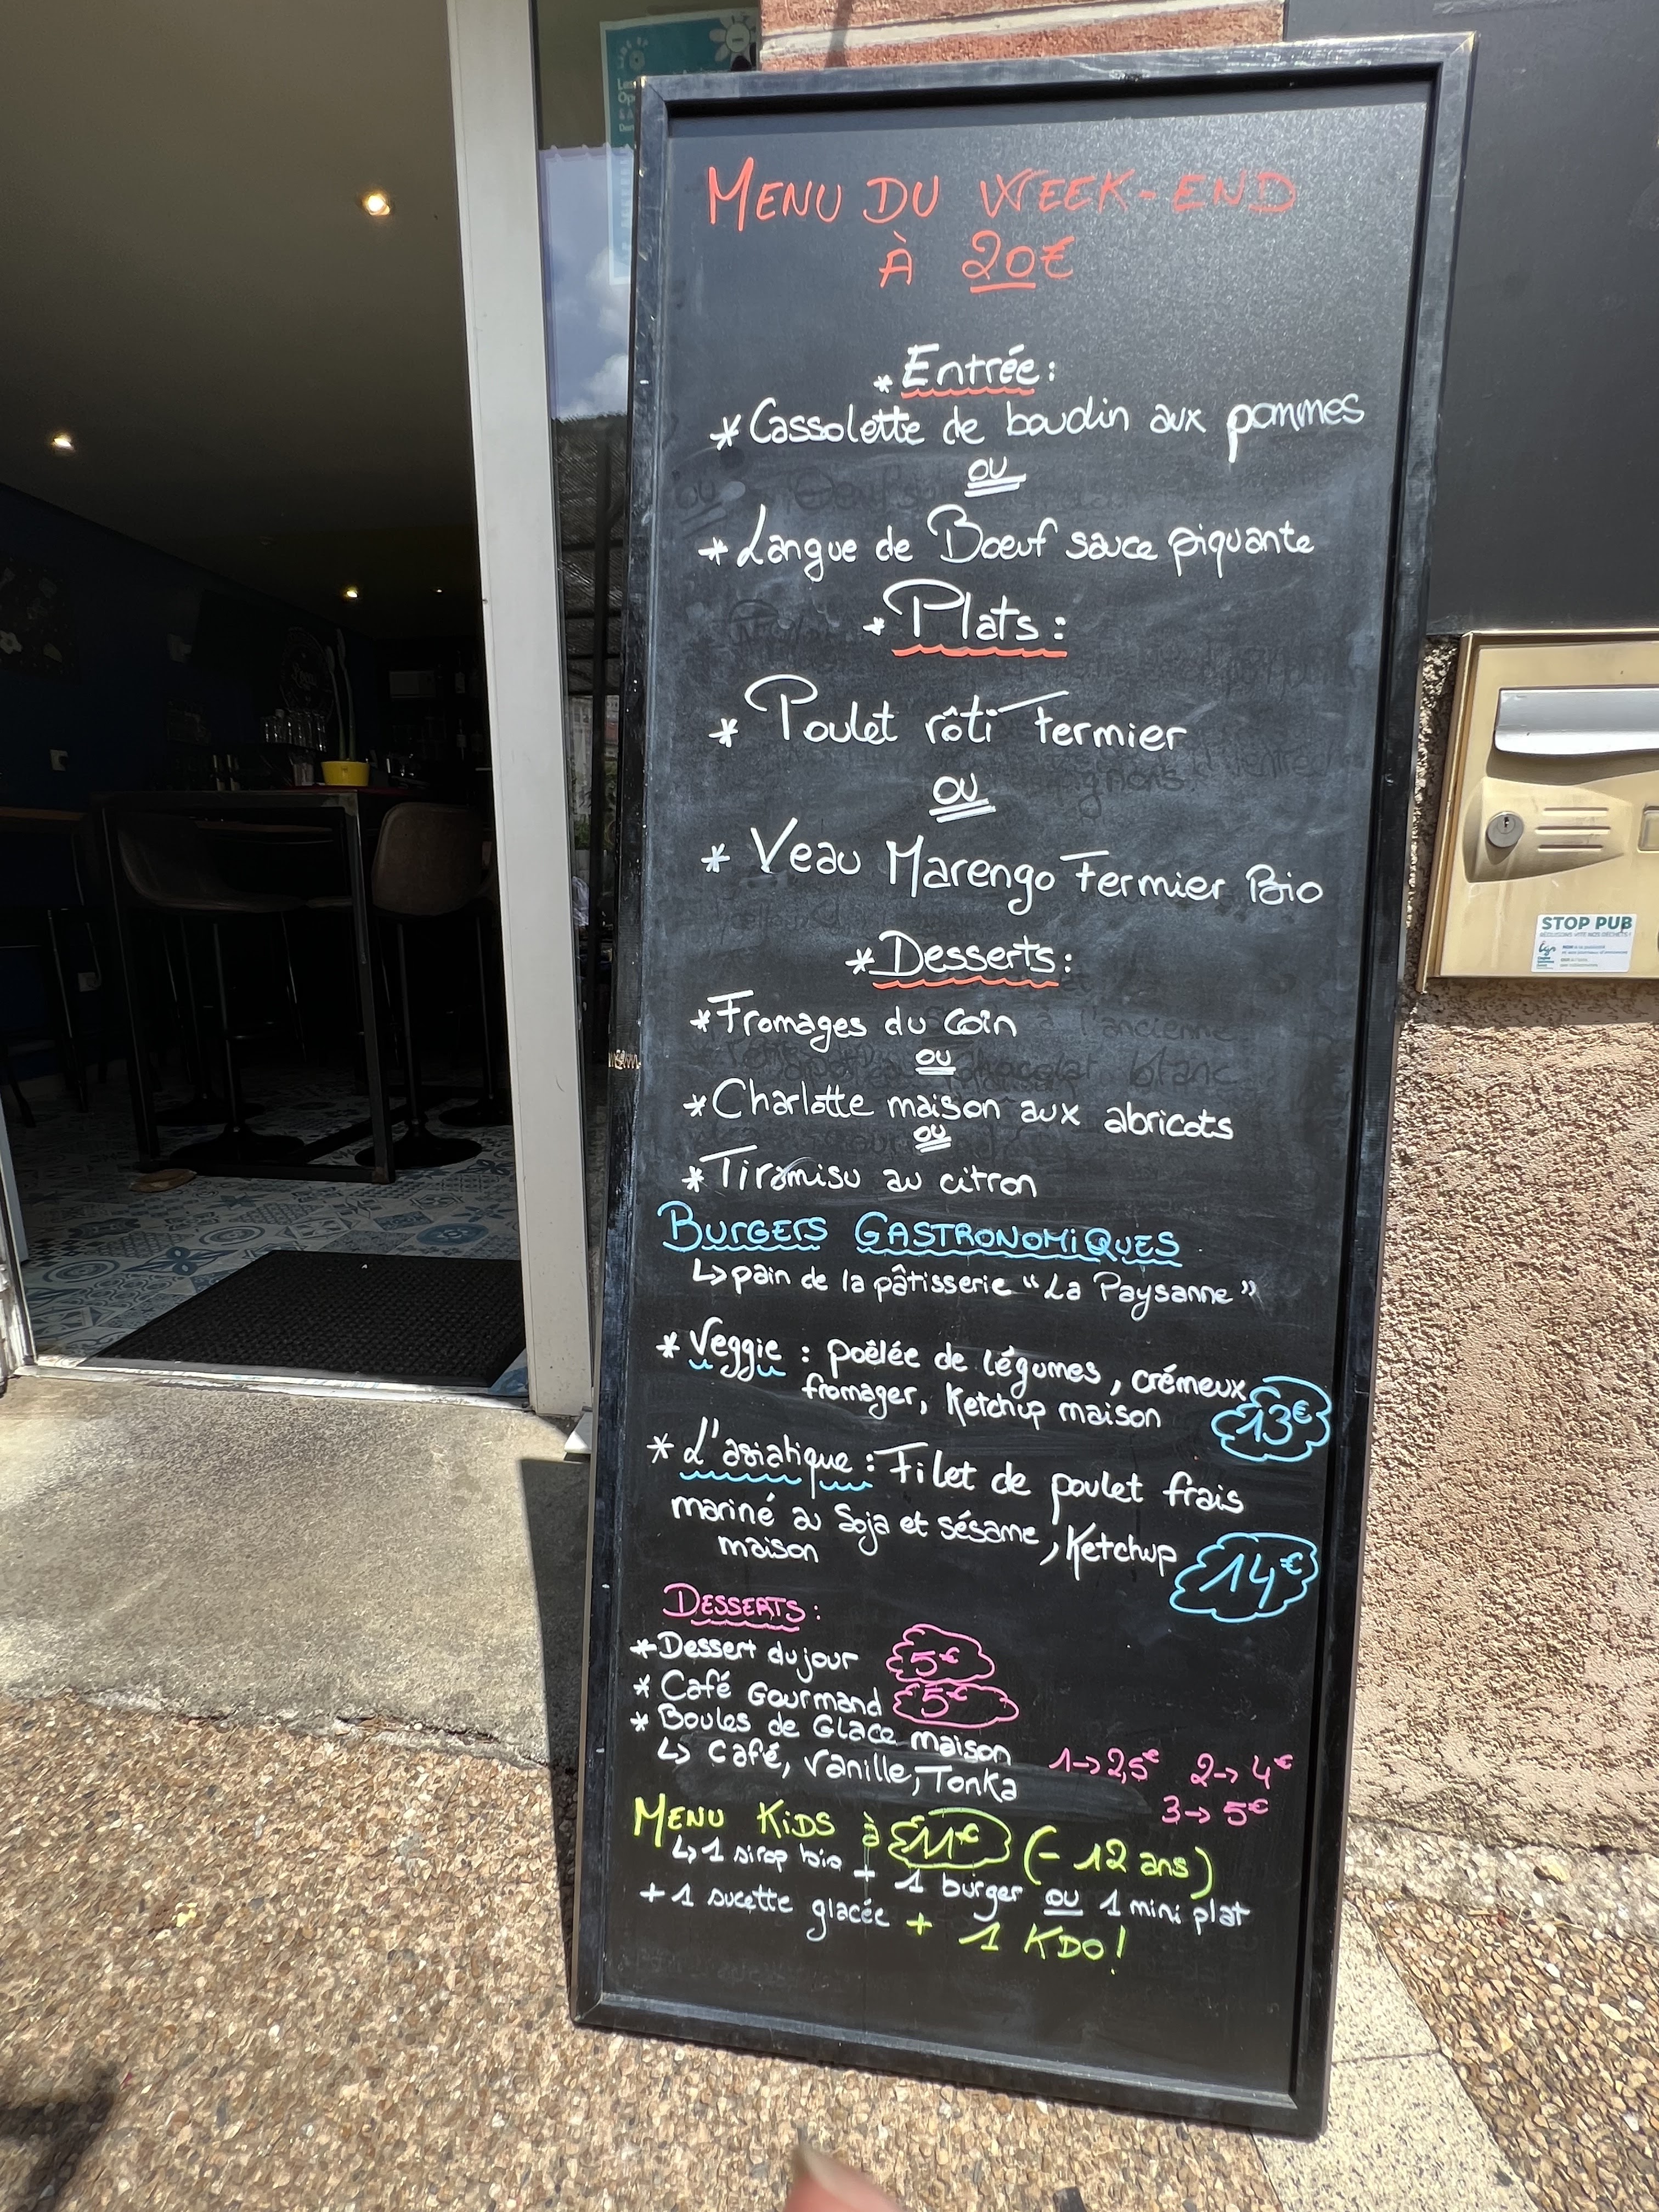 MENU DU WEEK-END
À 20€
* Entrée :
* Cassolette de boudin aux pommes
ou
* Langue de Boeuf sauce piquante
* Plats :
* Poulet rôti Fermier
ou
* Veau Marengo Fermier Bio
* Desserts :
* Fromages du coin
ou
* Charlotte maison aux abricots
ou
* Tiramisu au citron
BURGERS GASTRONOMiQUES
↳ pain de la pâtisserie "La Paysanne"
* Veggie : poêlée de légumes, crémeux
fromager, Ketchup maison 13€
* L'asiatique : Filet de poulet frais
mariné au Soja et sésame, Ketchup
maison 14€
DESSERTS :
* Dessert du jour 5€
* Café Gourmand 5€
* Boules de Glace maison
↳ Café, Vanille, Tonka 1→2,5€ 2→4€
3→5€
MENU KiDS à 11€ (- 12 ans)
↳ 1 sirop bio + 1 burger ou 1 mini plat
+ 1 sucette glacée + 1 KDO!
STOP PUB